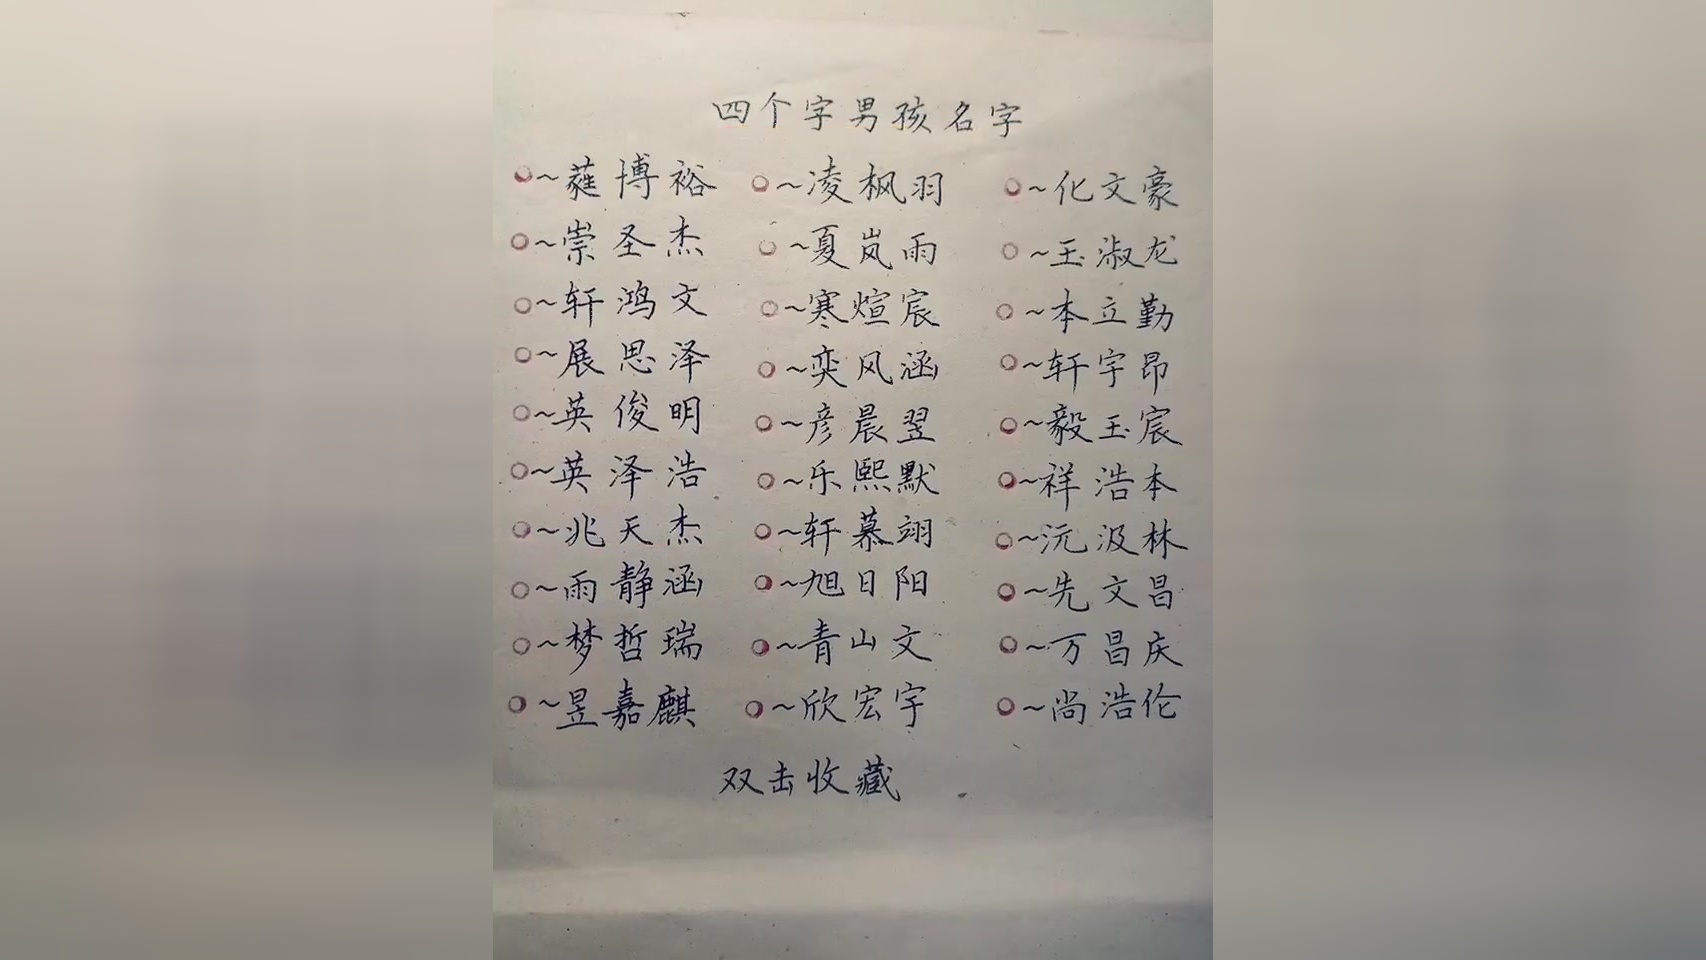 四个字男孩名字
○~蕹博裕 ○~凌枫羽 ○~化文豪
○~崇圣杰 ○~夏岚雨 ○~玉淑龙
○~轩鸿文 ○~寒煊宸 ○~本立勤
○~展思泽 ○~奕风涵 ○~轩宇昂
○~英俊明 ○~彦晨翌 ○~毅玉宸
○~英泽浩 ○~乐熙默 ○~祥浩本
○~兆天杰 ○~轩慕翊 ○~沅汲林
○~雨静涵 ○~旭日阳 ○~先文昌
○~梦哲瑞 ○~青山文 ○~万昌庆
○~昱嘉麒 ○~欣宏宇 ○~尚浩伦
双击收藏